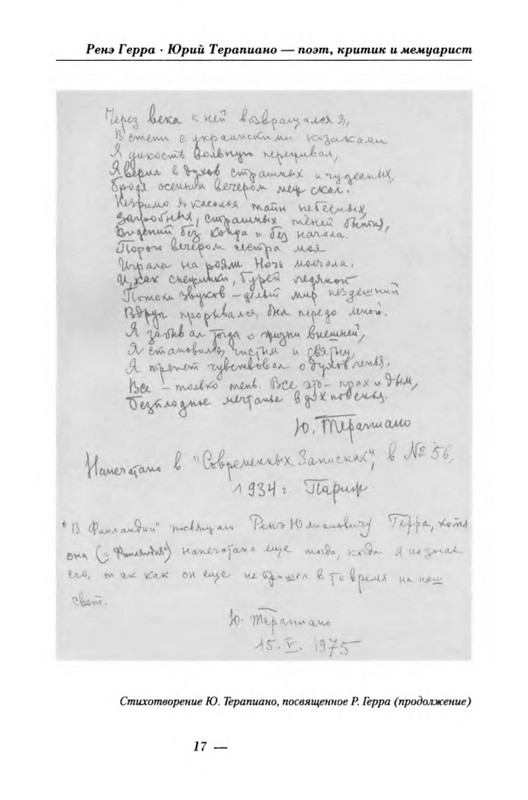 Ренэ Герра · Юрий Терапиано — поэт, критик и мемуарист
Через века к ней возвращался я,
В степи с украинскими козаками
Я дикость вольную переживал,
Я верил в духов страшных и чудесных,
Бродя осенним вечером меж скал.
Незримо я касался тайн небесных,
Загробных, страшных теней бытия,
Видений без конца и без начала.
Порою вечером сестра моя
Играла на рояли. Ночь молчала.
И, как снежинки, бурей ледяной
Потоки звуков — целый мир нездешний
Вдруг прорывался, был передо мной.
Я забывал тогда о жизни внешней,
Я становился чистым и святым,
Я трепет чувствовал одухотворенья.
Все — только тень. Все это — прах и дым,
Бесплодные мечтанья вдохновенья.
Ю. Терапиано
Напечатано в "Современных Записках", в № 56,
1934 г. Париж
* "В Финляндии" посвящаю Ренэ Юлиановичу Герра, хотя
она ("Финляндия") напечатана еще тогда, когда я не знал
его, так как он еще не пришел в то время на наш
свет.
Ю. Терапиано
15. V. 1975
Стихотворение Ю. Терапиано, посвященное Р. Герра (продолжение)
17 —